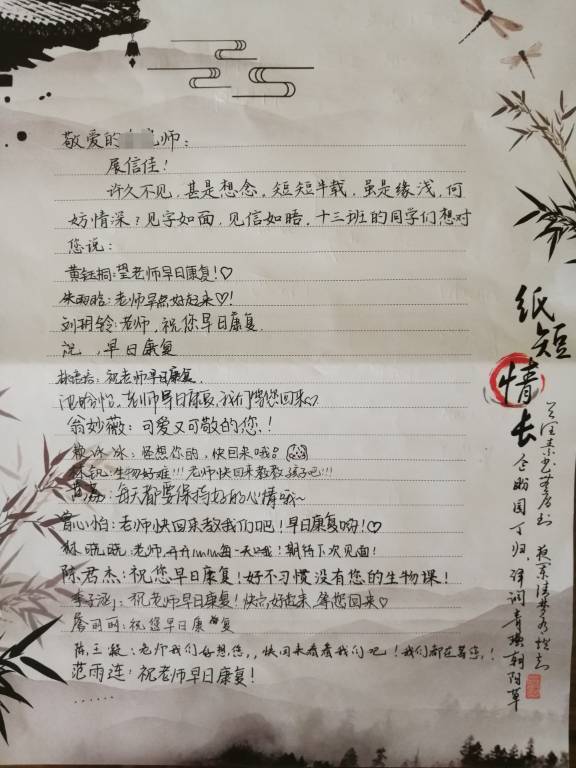 敬爱的 师：
展信佳！
许久不见，甚是想念，短短半载，虽是缘浅，何
妨情深？见字如面，见信如晤，十三班的同学们想对
您说：
黄钰桐：望老师早日康复！♡
老师早点好起来♡！
刘玥铃：老师，祝您早日康复.
，早日康复
祝老师早日康复.
老师早日康复，我们等您回来♡
翁妙薇：可爱又可敬的您.！
冰：怪想你的，快回来哦
生物好难!!!老师快回来教教孩子吧!!!
每天都要保持好的心情哦~
心怡：老师快回来教我们吧！早日康复哟！♡
林晓晓：老师，开开 每一天哦！期待下次见面！
陈君杰：祝您早日康复！好不习惯没有您的生物课！
李子涵：祝老师早日康复！快点好起来，等您回来♡
丽丽：祝您早日康 复
陈 ：老师我们好想您，，快回来看看我们吧！我们都在等您，！
范雨连：祝老师早日康复！
······
纸短情长
仝盼园丁归，
朝阳草